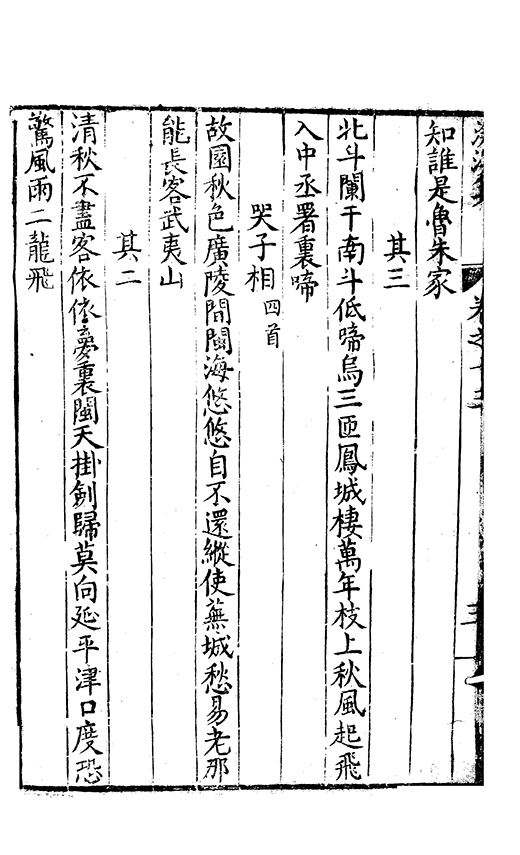 知誰是魯朱家
其三
北斗闌干南斗低啼烏三匝鳳城棲萬年枝上秋風起飛
入中丞署裏啼
哭子相四首
故園秋色廣陵間閩海悠悠自不還縱使蕪城愁易老那
能長客武夷山
其二
清秋不盡客依依夢裏閩天掛劍歸莫向延平津口度恐
驚風雨二龍飛